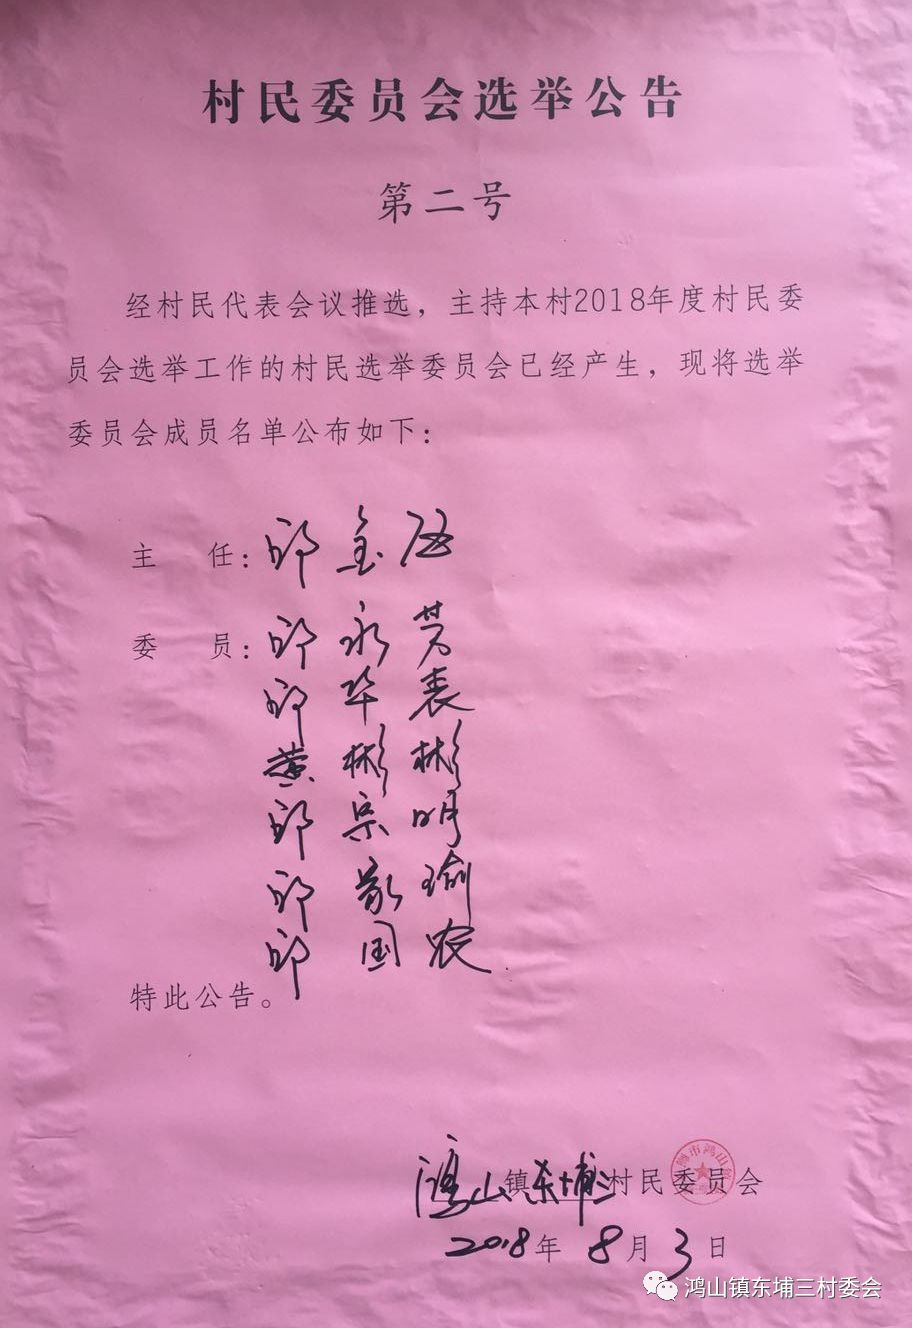 村民委员会选举公告
第二号
经村民代表会议推选，主持本村2018年度村民委
员会选举工作的村民选举委员会已经产生，现将选举
委员会成员名单公布如下：
主 任：邱金伍
委 员：邱永芳
邱华表
黄彬彬
邱宗明
邱敬瑜
邱国农
特此公告。
鸿山镇东埔三村民委员会
2018年8月3日
鸿山镇东埔三村委会